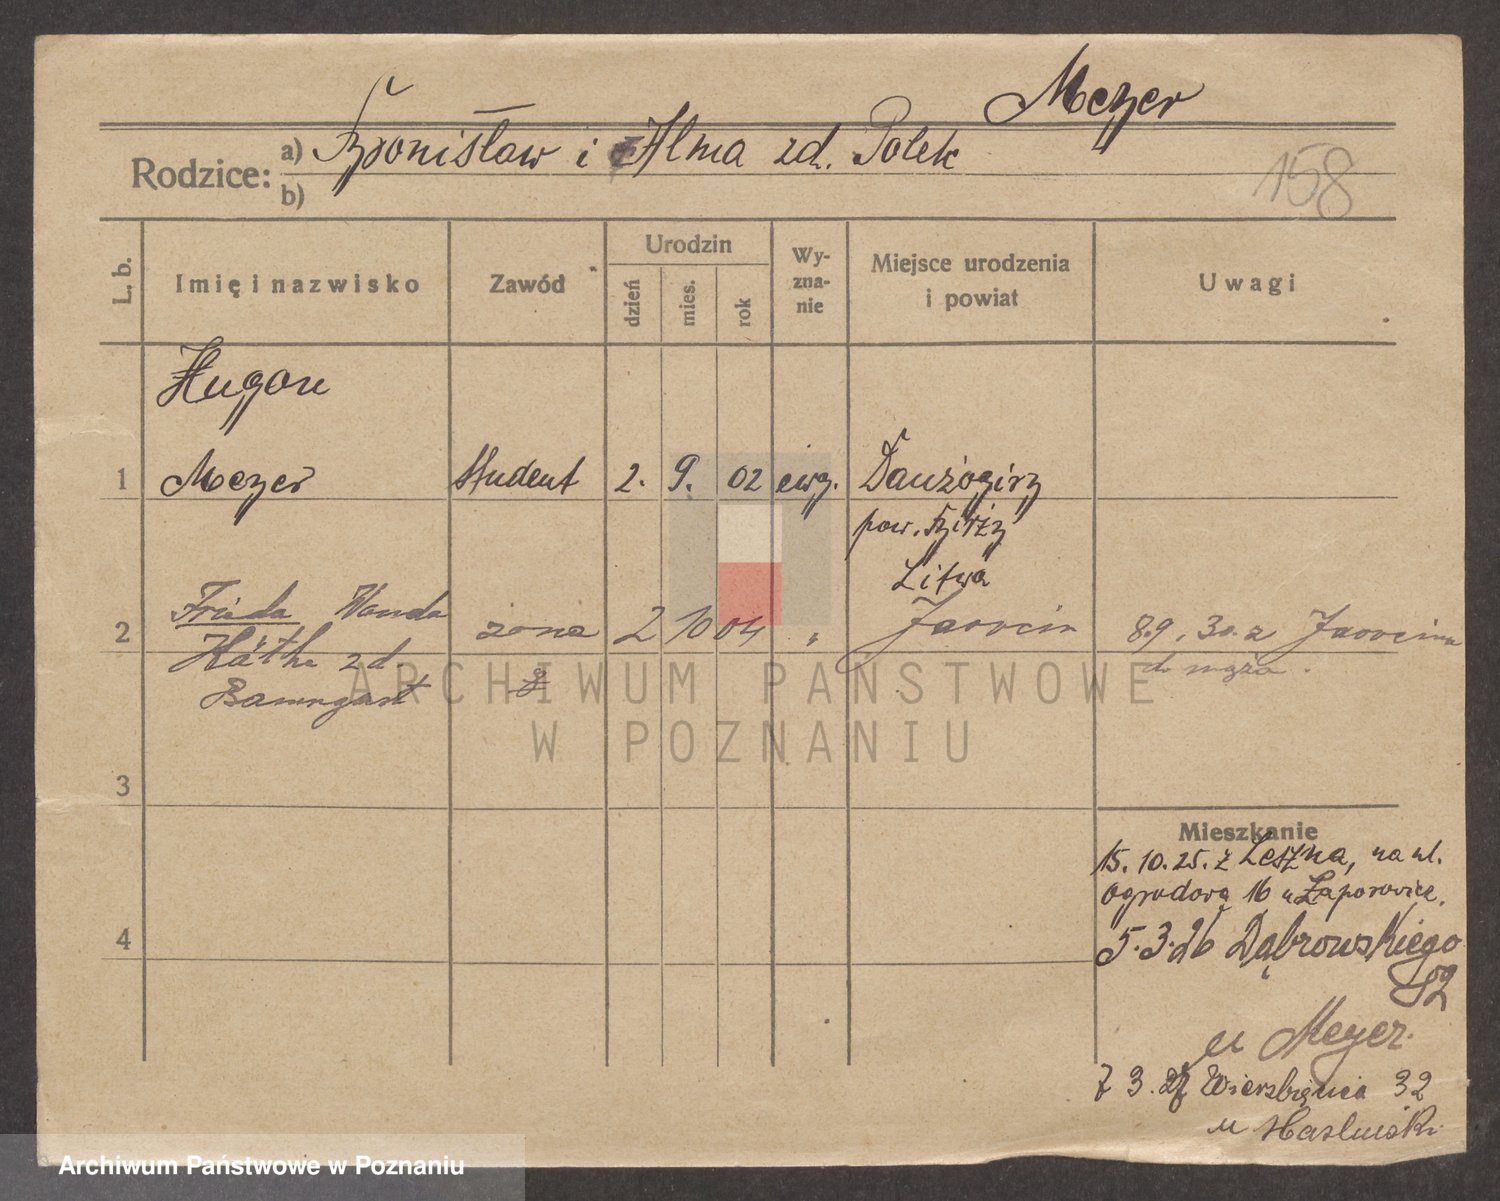 Meyer
Rodzice: a) Bronisław i Alma zd. Polek
b)
158
L. b.
Imię i nazwisko
Zawód
Urodzin
dzień
mies.
rok
Wy-
zna-
nie
Miejsce urodzenia
i powiat
Uwagi
Hugon
1 Meyer student 2. 9. 02 ewg.
pow.
Litwa
2 Frieda Wanda żona 2 10 04 " Jarocin 8.9. 30. z Jarocina
Käthe zd. do męża.
Baumgart
3
4
Mieszkanie
15. 10. 25. z Leszna, na ul.
Ogrodową 16 u Zaporowicz.
5.3.26 Dąbrowskiego
52
u Meyer.
7 3. 27 Wierzbięcice 32
u
ARCHIWUM PAŃSTWOWE
W POZNANIU
Archiwum Państwowe w Poznaniu